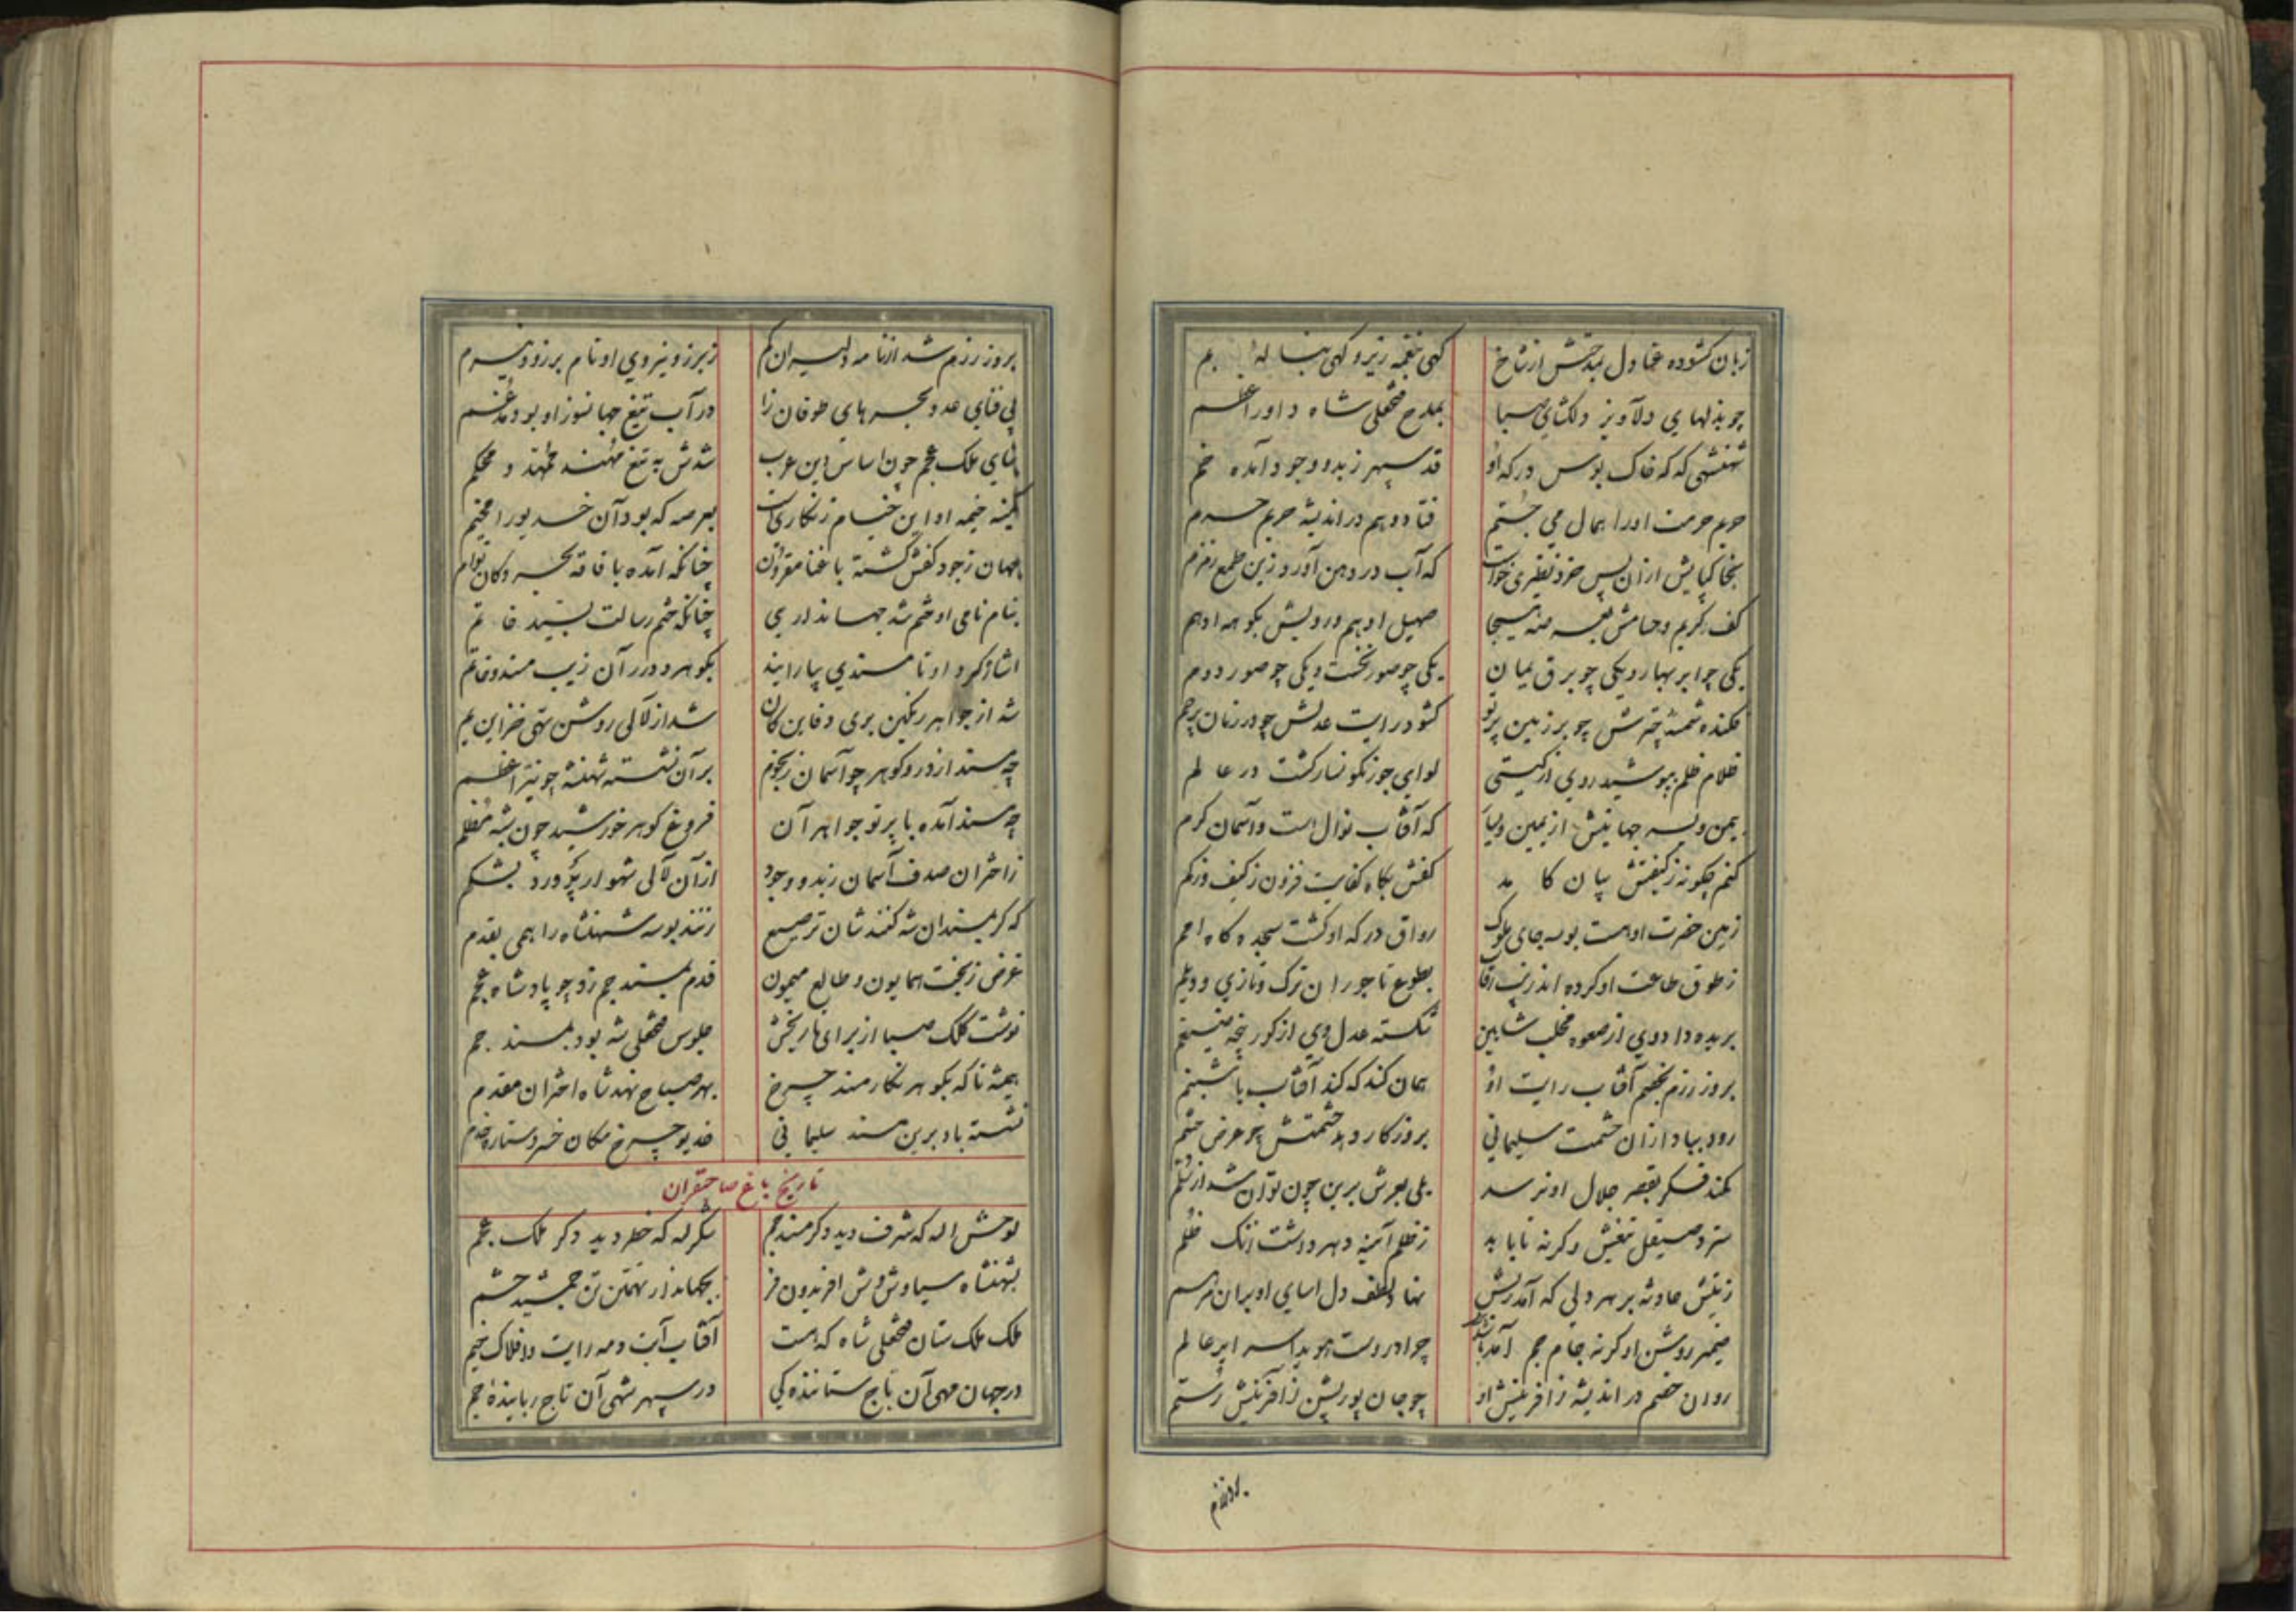 زبان کشوده عنادل بمدحش از شاخ کهی بنغمه زیر و کهی بناله بم
چو بذلهای دلآویز دلکشای صبا بمدح فتحعلی شاه داور اعظم
شهنشهی که که خاک بوس درکه او قد سپهر ز بدو وجود آمده خم
حریم حرمت اورا همال می جستم فتاد وهم در اندیشه حریم حرم
بخاکپایش ازان پس خرد نظیری خواست که آب در دهن آورد زین طمع زمزم
کف کریم و حسامش صهیل ادهم و رویش بکوهه ادهم
یکی چو ابر بهار و یکی چو برق یمان یکی چو صور نخست و یکی چو صور دوم
فکنده شمسهٔ چترش چو بر زمین پرتو کشود رایت عدلش چو در زمان پرچم
ظلام ظلم بپوشید روی از کیتی لوای جور نکونسار کشت در عالم
یمن و یسر جهانیش از یمین و یسار که آفتاب نوال است و آسمان کرم
کنم چکونه ز کیفیتش بیان کامد کفش بکاه کفایت فزون ز کیف و ز کم
زمین حضرت اوست بوسه جای ملوک رواق درکه او کشت سجده کاه امم
ز طوق طاعت او کرده اند زیب رقاب بطوع تاجوران ترک و تازی و دیلم
بریده داد وی از صعوه مخلب شاهین شکسته عدل وی از کور پنجه ضیغم
بروز رزم بخصم آفتاب رایت او همان کند که کند آفتاب با شبنم
رود بباد ازان حشمت سلیمانی بروزکار دهد حشمتش چو عرض حشم
کمند فکر بقصر جلال او نرسد بلی بعرش برین چون توان شد از سلم
سترد صیقل تیغش وکرنه تا باید ز ظلم آینهٔ دهر داشت زنک ظلم
ز نیش حادثه بر هر دلی که آمد ریش نهاد لطف دل آسای او بران مرهم
ضمیر روشن او کرنه جام جم آمد چرا دروست هویدا سرایر عالم
روان خصم در اندیشه ز آفرینش او چو جان پور پشن ز آفرینش رستم
بروز رزم
بروز رزم شد از نامه دلیران کم ز برز و نیروی او نام برزو و نیرم
پی فنای عدو بحرهای طوفان زا در آب تیغ جهانسوز او بود مدغم
بنای ملک عجم چون اساس دین عرب شدش به تیغ مهند ممهد و محکم
کمینه خیمه او این خیام زنکاری است
جهان ز جود کفش کشته با غنا مقرون چنانکه آمده با فاقه بحر و کان توام
بنام نامی او ختم شد جهانداری چنانکه ختم رسالت بسید خاتم
اشاره کرد او تا مسندی بیارایند بکوهر و درر آن زیب مسند و خاتم
شد از جواهر رنکین بری دفاین کان شد از لآلی روشن تهی خزاین یم
چه مسند از در و کوهر چو آسمان ز نجوم بر آن نشسته شهنشه چو نیر اعظم
چه مسند آمده با پرتو جواهر آن فروغ کوهر خورشید چون شبه مظلم
ز اختران صدف آسمان ز بدو وجود از آن لآلی شهوار پرورد بشکم
که کر بمسند آن شه کنندشان ترصیع زنند بوسه شهنشاه را همی بقدم
غرض ز بخت همایون و طالع میمون قدم بمسند جم زد چو پادشاه عجم
نوشت کلک صبا از برای تاریخش جلوس فتحعلی شه بود بمسند جم
همیشه تا که بکوهر نکار مسند چرخ بهر صباح نهد شاه اختران مقدم
نشسته باد برین مسند سلیمانی خدیو چرخ مکان خسرو ستاره خدم
تاریخ باغ صاحبقران
لوحش الله که شرف دید دکر مسند جم شکر لله که خطر دید دکر ملک عجم
بشهنشاه سیاوش وش افریدون فر بجهاندار تهمتن تن جمشید حشم
ملک ملک ستان فتحعلی شاه که هست آفتاب آیت و مه رایت و افلاک خیم
در جهان مهی آن تاج ستاننده کی در سپهر شهی آن تاج رباینده جم